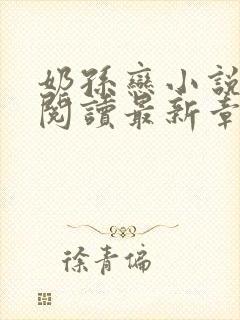 奶孫戀小說
閱讀最新章
徐青偏